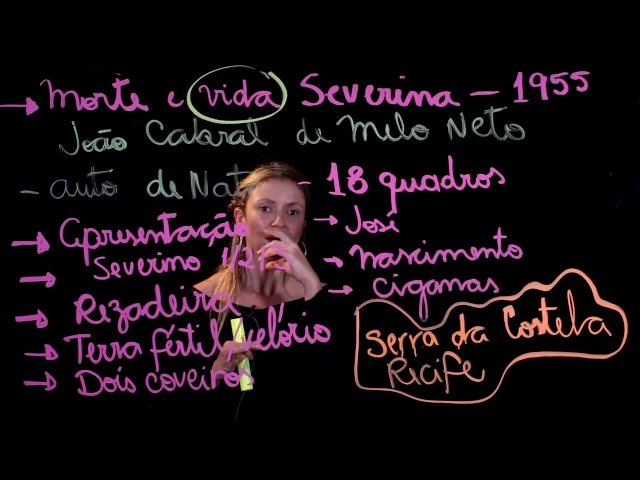 → Morte e vida Severina – 1955
João Cabral de Melo Neto
- auto de Nat – 18 quadros
→ Apresentação
→ Severino
→ Rizadeira
→ Terra fértil, velório
→ Dois coveiros
→ José
→ nascimento
→ ciganas
Serra da Costela
Ricife